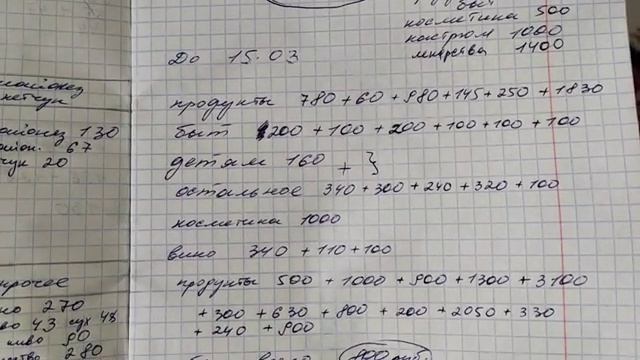 быт
косметика 500
костром 1000
лекарства 1400
До 15.03
продукты 780 + 60 + 980 + 145 + 250 + 1830
быт 200 + 100 + 200 + 100 + 100 + 100
детям 160 + }
остальное 340 + 300 + 240 + 320 + 100
косметика 1000
вино 340 + 110 + 100
продукты 500 + 1000 + 900 + 1300 + 3100
+ 300 + 630 + 800 + 200 + 2050 + 330
+ 240 + 900
130
67
20
прочее
270
43 сух 48
пиво 90
280